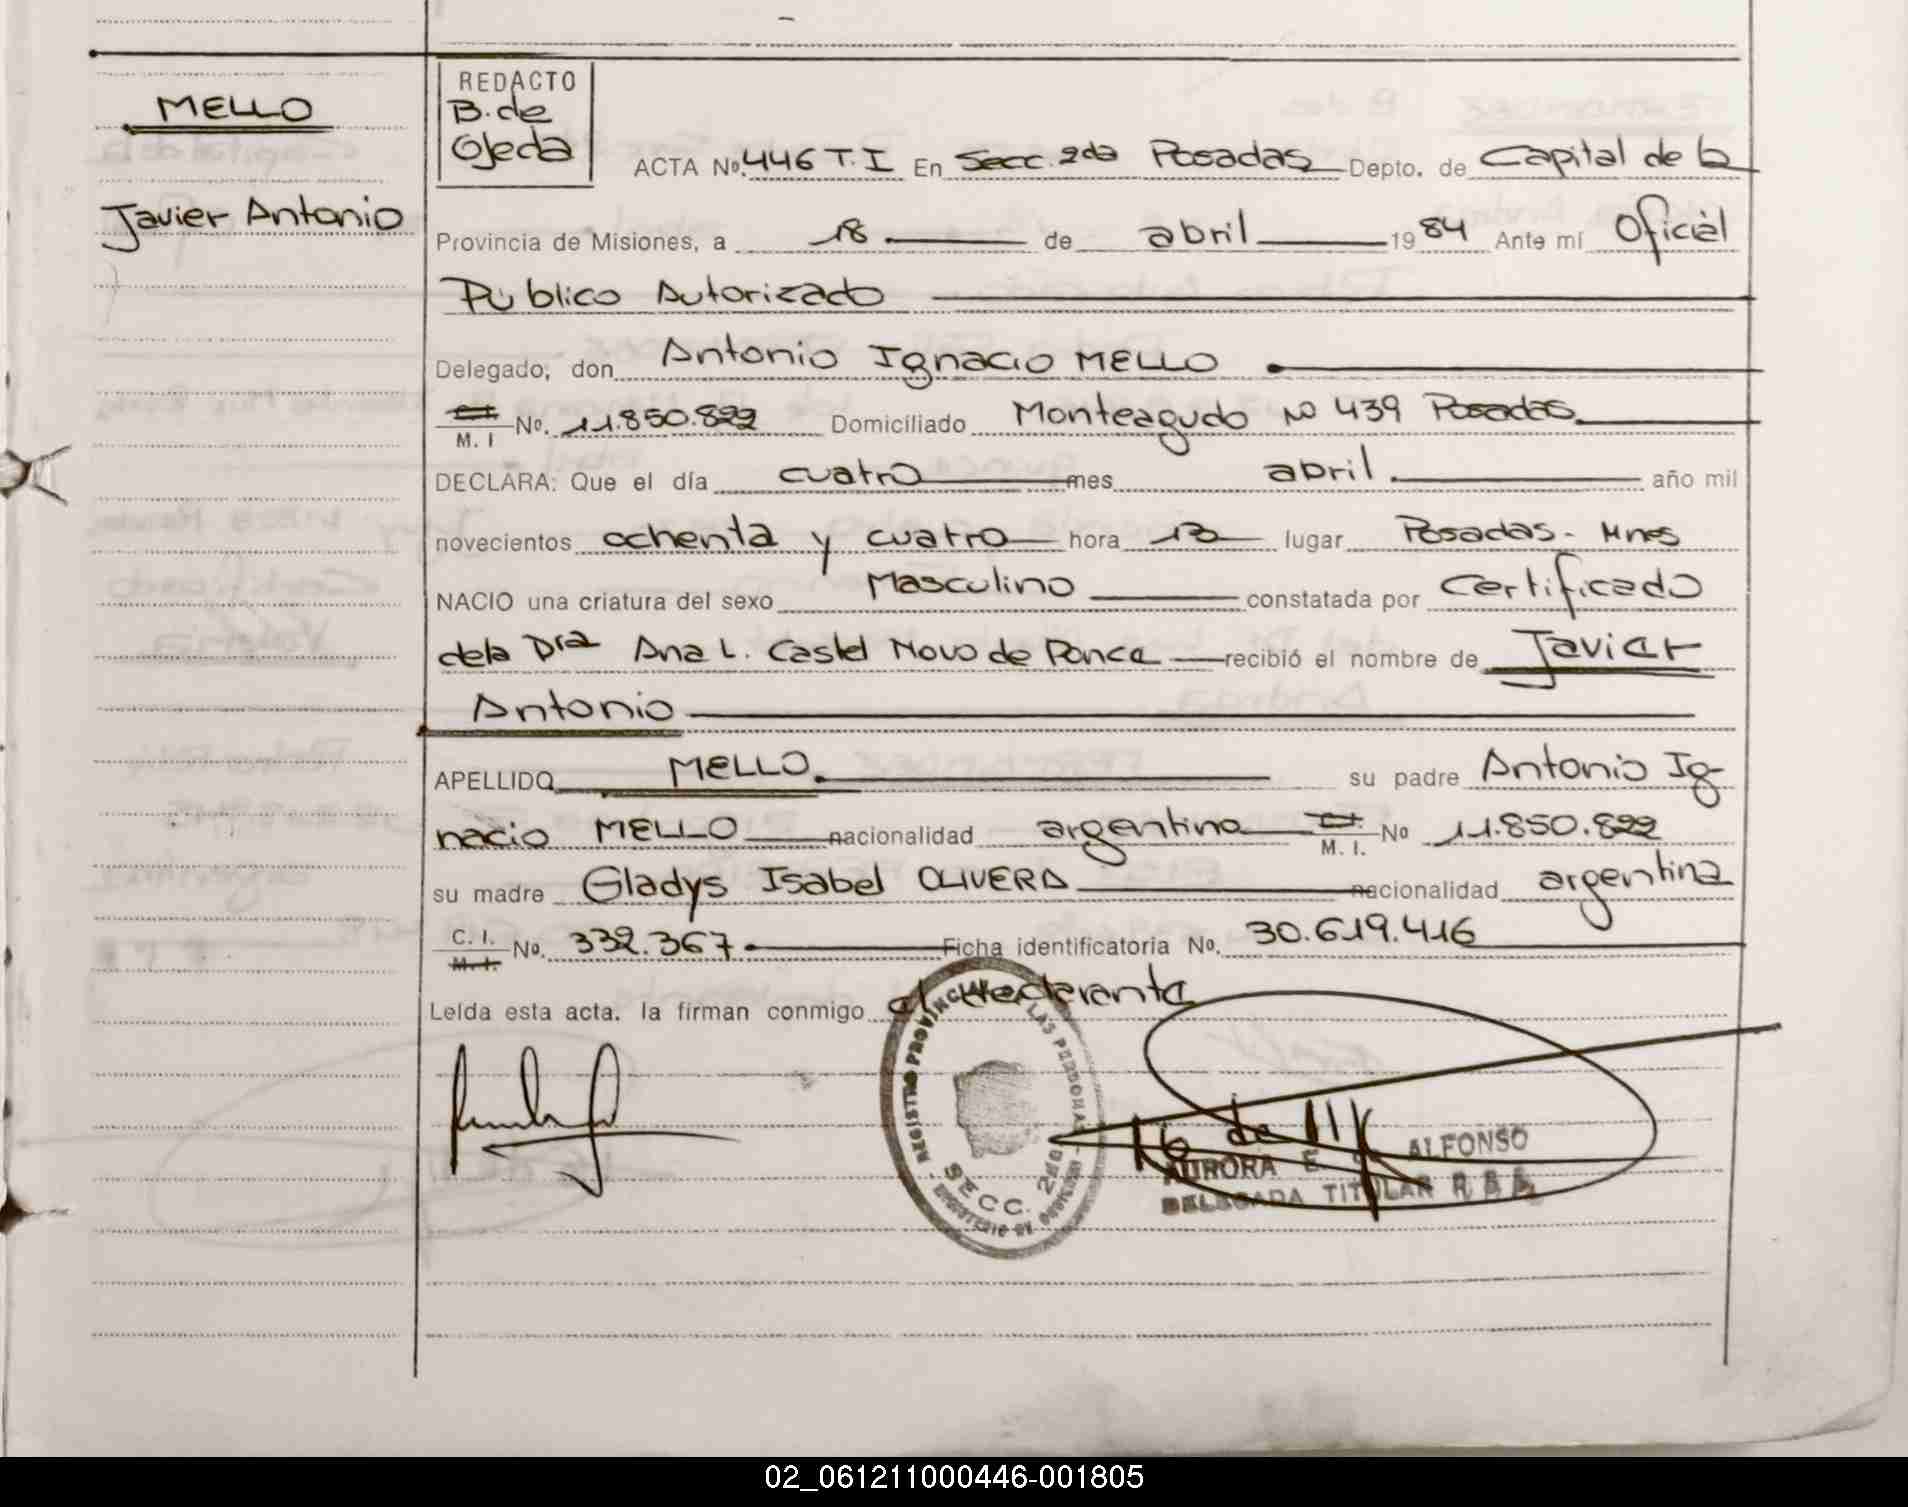 MELLO
Javier Antonio
REDACTO
B. de
Ojeda
ACTA Nº 446 T. I En Secc. 2da Posadas Depto. de Capital de la
Provincia de Misiones, a 18 de abril 1984 Ante mí Oficial
Público Autorizado
Delegado, don Antonio Ignacio MELLO
M. I Nº. 11.850.822 Domiciliado Monteagudo Nº 439 Posadas
DECLARA: Que el día cuatro mes abril año mil
novecientos ochenta y cuatro hora 13 lugar Posadas - Mnes
NACIO una criatura del sexo Masculino constatada por Certificado
dela Dra Ana L. Castel Novo de Ponce recibió el nombre de Javier
Antonio
APELLIDO MELLO. su padre Antonio Ig-
nacio MELLO nacionalidad argentina C.I. M. I. Nº 11.850.822
su madre Gladys Isabel OLIVERA nacionalidad argentina
C. I. M. I. Nº. 332.367 Ficha identificatoria Nº. 30.619.416
Leída esta acta. la firman conmigo el declarante
REGISTRO PROVINCIAL LAS PERSONAS
SECC. 2da
AURORA E. ALFONSO
DELEGADA TITULAR
02_061211000446-001805